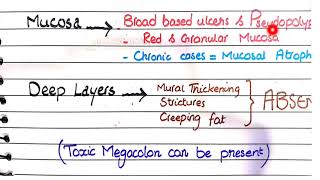 Mucosa → Broad based ulcers & Pseudopolyp
- Red & Granular Mucosa
- Chronic cases = Mucosal Atroph
Deep Layers → Mural Thickening
Strictures
Creeping fat } ABSEN
(Toxic Megacolon can be present)